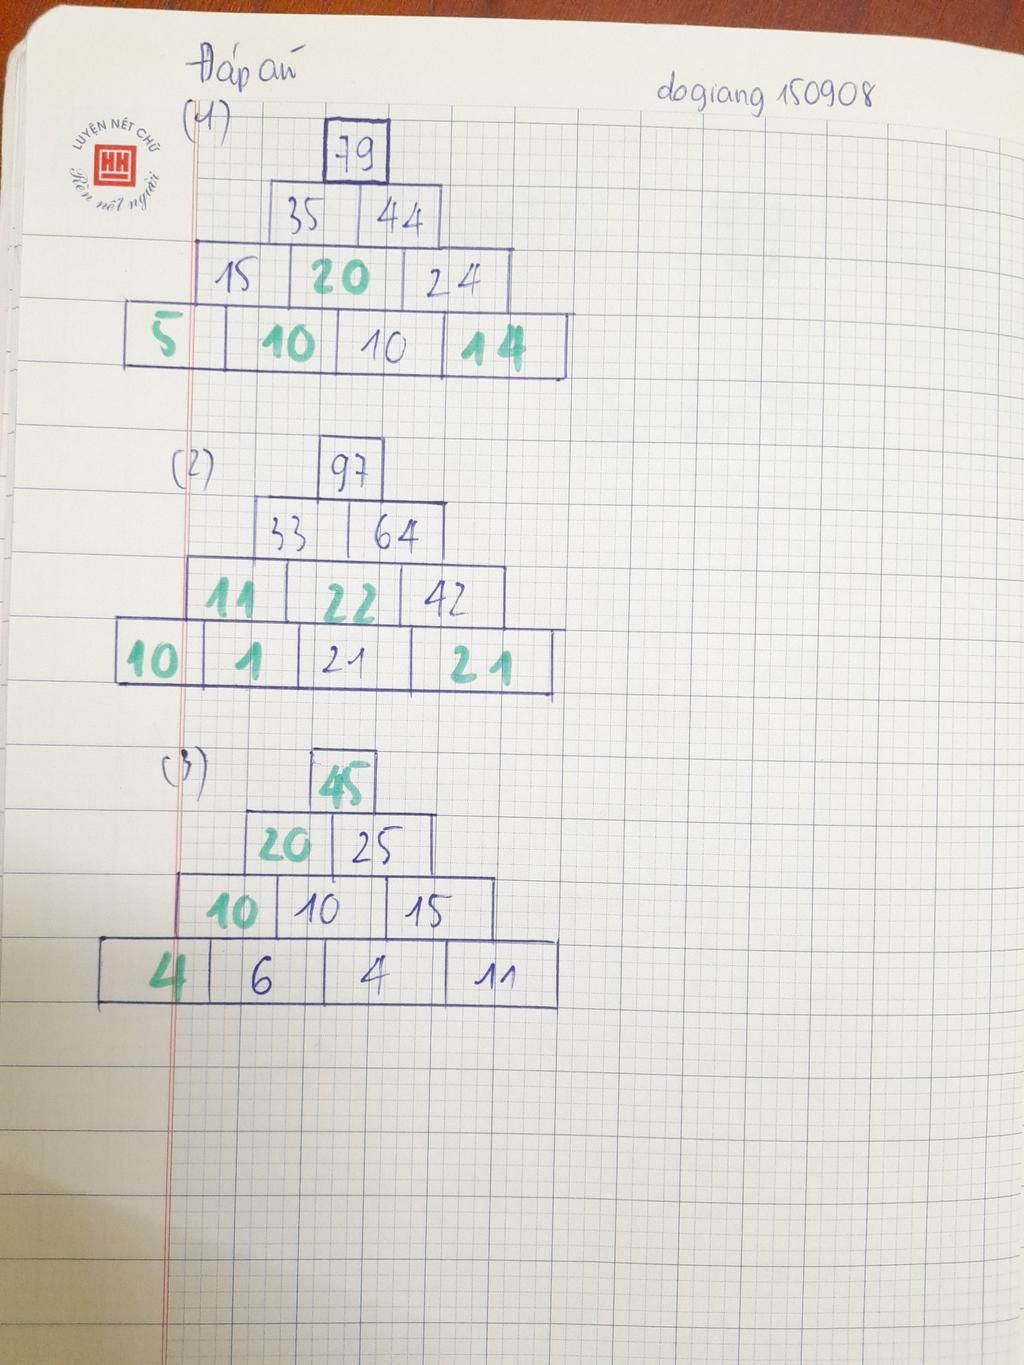 Đáp án
dogiang 150908
LUYỆN NÉT CHỮ
HH
Rèn nết người
(1)
79
35 44
15 20 24
5 10 10 14
(2)
97
33 64
11 22 42
10 1 21 21
(3)
45
20 25
10 10 15
4 6 4 11